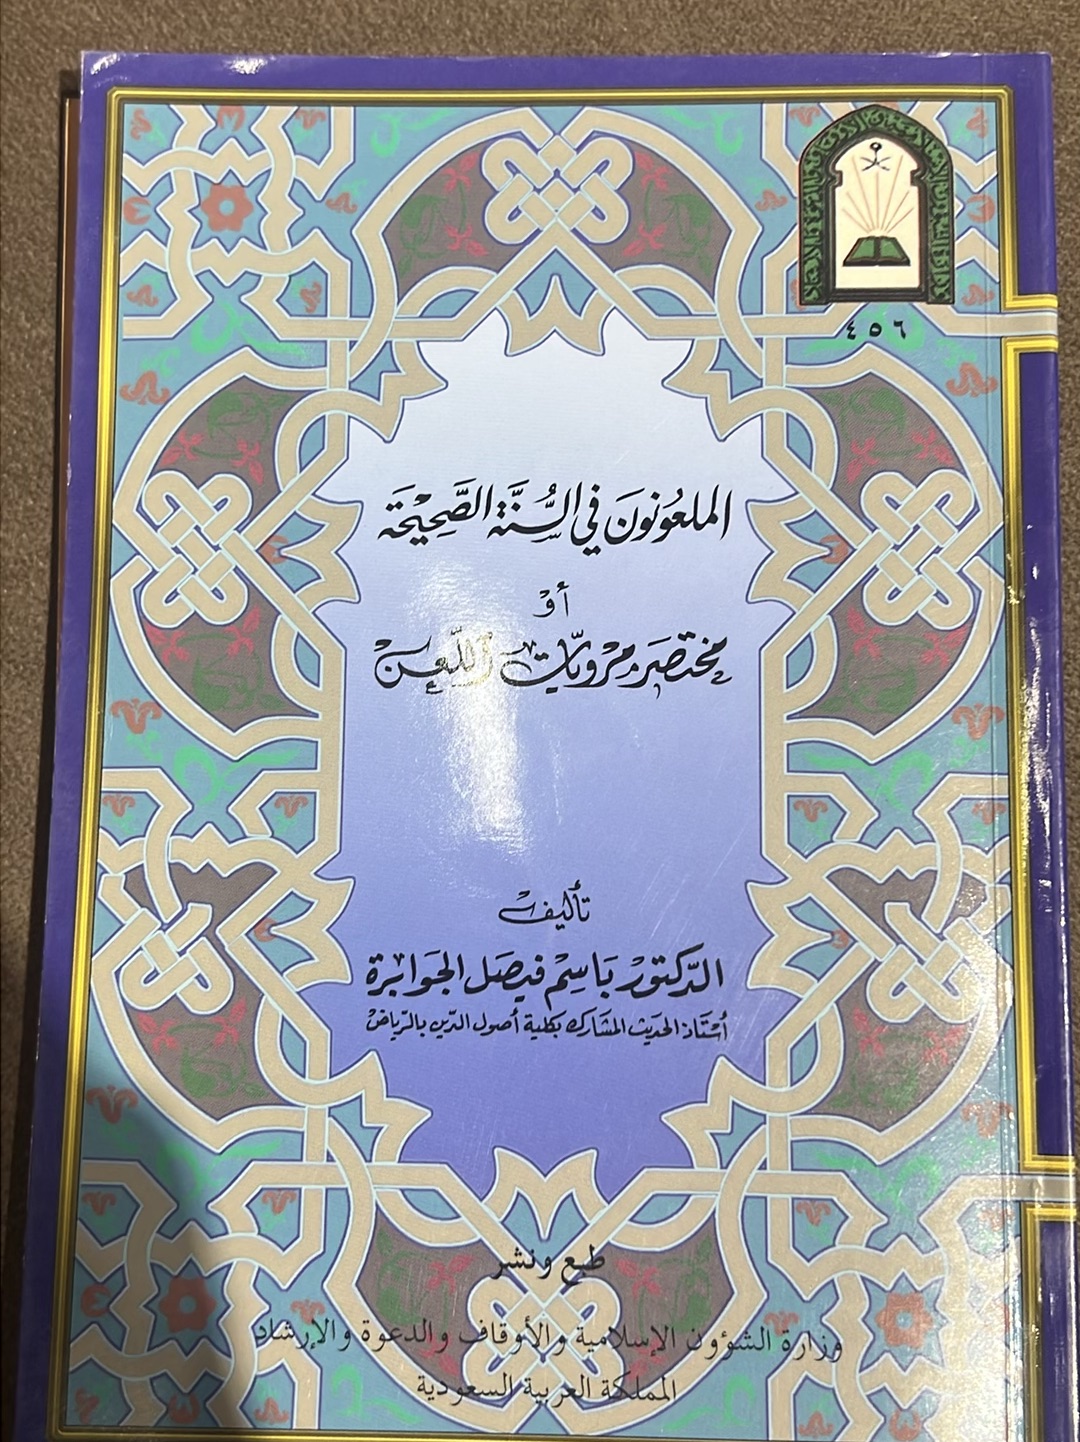 ٤٥٦
الملعونون في السُّنَّة الصَّحِيْحَة
أوْ
مختصر مرويّات اللّعن
تأليف
الدّكتور باسِمْ فيصَل الجَوابرة
أستاذ الحديث المشارك بكلية أصول الدّين بالرّياض
طبع ونشر
وزارة الشؤون الإسلامية والأوقاف والدعوة والإرشاد
المملكة العربية السعودية